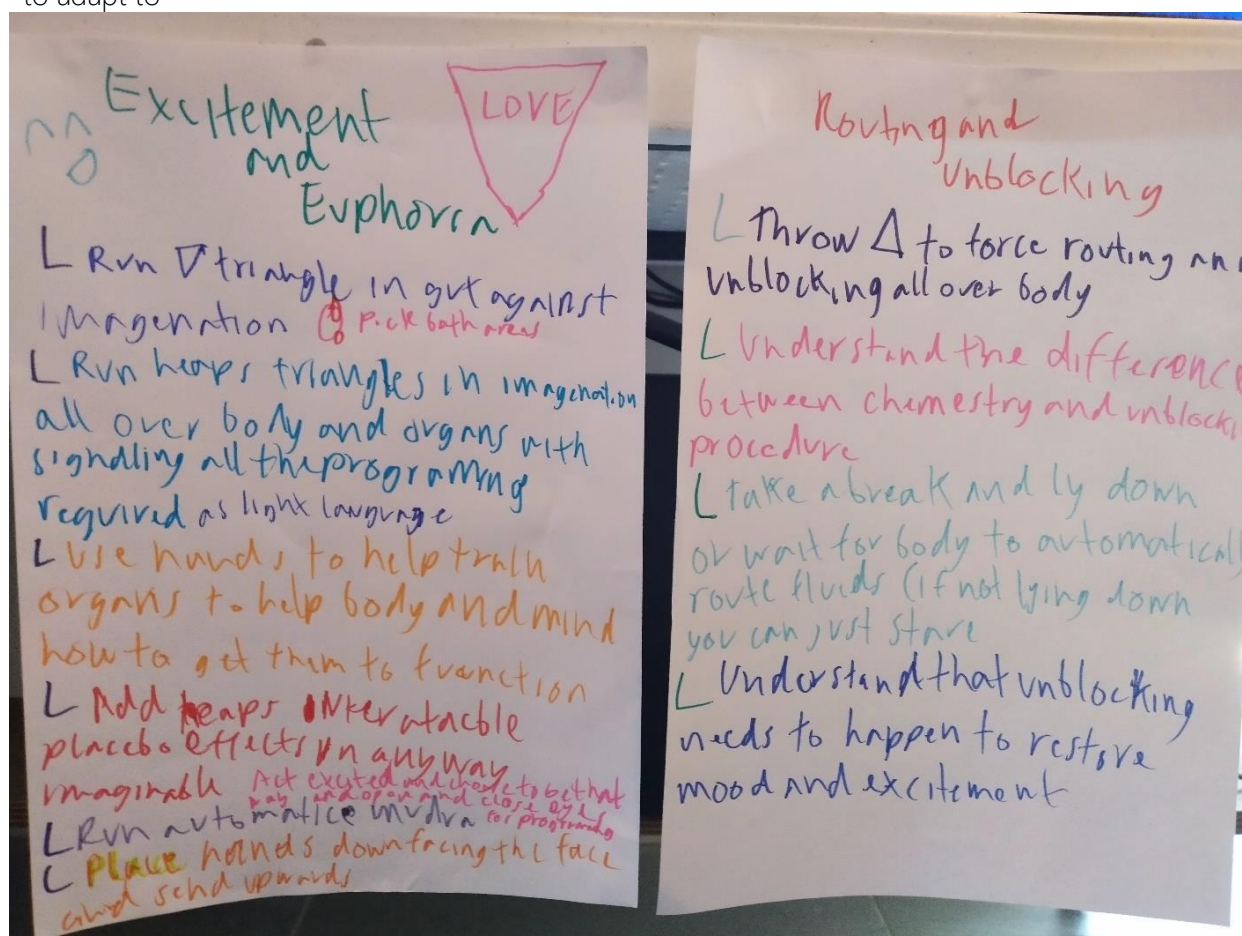 to adapt to
Excitement
and
Euphoria
LOVE
L Run ▽ triangle in gut against
imagenation Pick both areas
L Run heaps triangles in imagenation
all over body and organs with
signalling all the programing
required as light language
L Use hands to help train
organs to help body and mind
how to get them to function
L Add heaps
placebo effects in anyway
imaginable Act excited and chose to be that
way and open and close eyes
for programing
L Run automatice mudra
L Place hands down facing the face
and send upwards
Routing and
Unblocking
L Throw △ to force routing an
unblocking all over body
L Understand the difference
between chemestry and unblocki
procedure
L take a break and ly down
or wait for body to automatical
route fluids (if not lying down
you can just stare
L Understand that unblocking
needs to happen to restore
mood and excitement